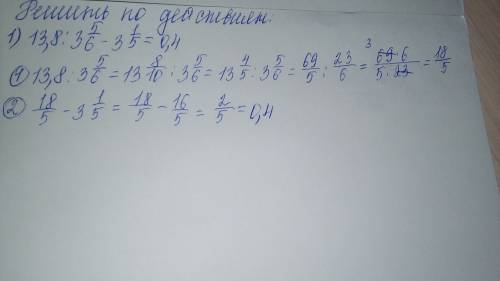 Решить по действиям:
1) 13,8 : 3 5/6 - 3 1/5 = 0,4
① 13,8 : 3 5/6 = 13 8/10 : 3 5/6 = 13 4/5 : 3 5/6 = 69/5 : 23/6 = 3 69·6/5·23 = 18/5
② 18/5 - 3 1/5 = 18/5 - 16/5 = 2/5 = 0,4